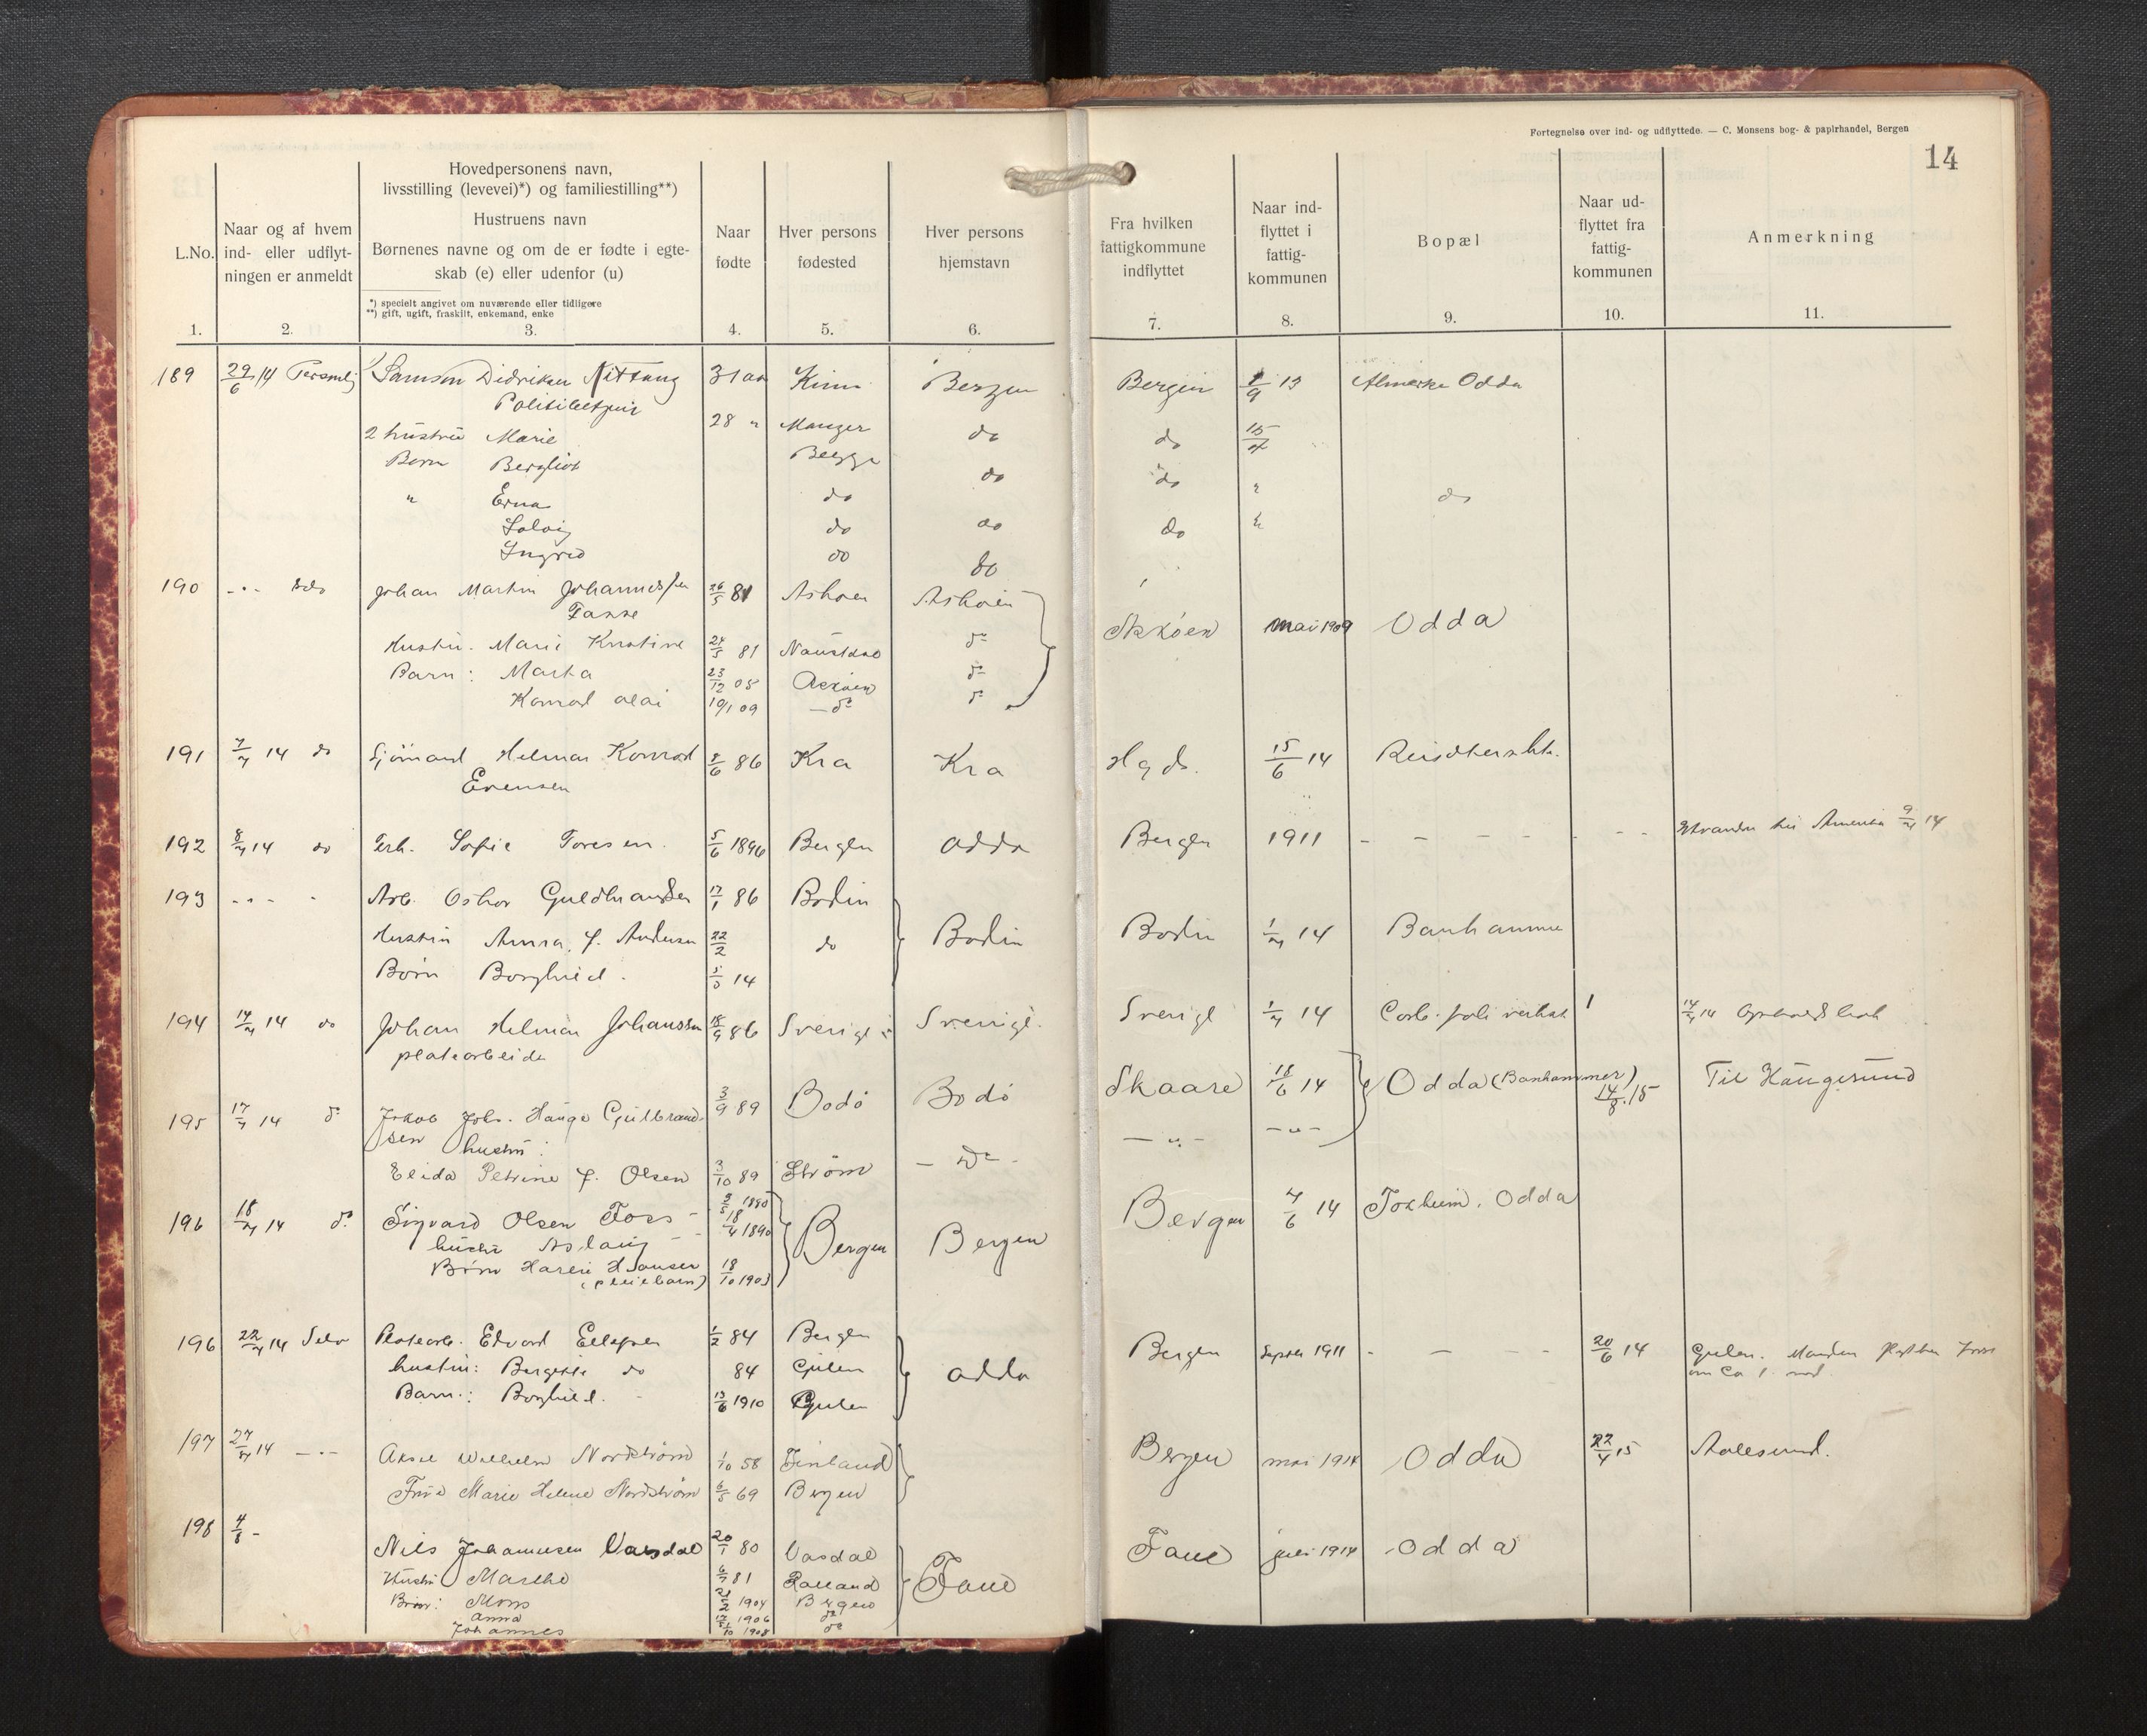 Fortegnelse over ind- og udflyttede. — C. Monsens bog- & papirhandel, Bergen
14
L.No.
1.
Naar og af hvem
ind- eller udflyt-
ningen er anmeldt
2.
Hovedpersonens navn,
livsstilling (levevei)*) og familiestilling**)
Hustruens navn
Børnenes navne og om de er fødte i egte-
skab (e) eller udenfor (u)
*) specielt angivet om nuværende eller tidligere
**) gift, ugift, fraskilt, enkemand, enke
3.
Naar
fødte
4.
Hver persons
fødested
5.
Hver persons
hjemstavn
6.
Fra hvilken
fattigkommune
indflyttet
7.
Naar ind-
flyttet i
fattig-
kommunen
8.
Bopæl
9.
Naar ud-
flyttet fra
fattig-
kommunen
10.
Anmerkning
11.
189 29/6 14 Samson Didriksen 31 aar Kinn Bergen Bergen 1/9 13 Odda
2 hustru Marie 28 " Manger do do
Børn Bergliot do do "
" Erna do do
Solvig do do do
Ingrid do do
190 - " - do Johan Martin Johannessen 26/5 81 Askøen Askøen Askøen mai 1909 Odda
Hustru. Marie Kristine 24/5 81 Naustdal do
Barn: Marta 23/12 05 Askøen do
Konrad 19/1 09 - do do
191 7/7 14 do Sjømand Helmar Konrad 8/6 86 Kra Kra 15/6 14
Evensen
192 8/7 14 do Sofie Toresen 5/6 1896 Bergen Odda Bergen 1911 - - - - - til Amerika 9/7 14
193 - " - Arb. Oskar 17/1 86 Bodin Bodin Bodin 1/7 14 Banhammer
Hustru Anna f. Andersen 22/2 do
Børn Borghild 14
194 14/7 14 do Johan Helmar Johanssen 18/9 86 Sverige Sverige Sverige 1/7 14
platearbeider
195 17/7 14 do Jakob Joh. Hauge Gulbrand- 3/9 89 Bodø Bodø Skaare 18/6 14 Odda (Banhammer) 14/8 15 Til Haugesund
sen hustru:
Elida Petrine f. Olsen 3/10 89 Strøm - do - - " - - " -
196 18/7 14 do Sigvard Olsen Foss 1890 Bergen Bergen Bergen 7/6 14 Tokheim, Odda
hustru Aslaug 18/4 1890
Børn Hansen 18/10 1903
(pleiebarn)
196 22/7 14 Selv Platearb. Edvard 1/2 84 Bergen Odda Bergen Septbr 1911 - - - - 20/6 14 Gulen. Manden
hustru: Bergitte do 84 Gulen om Ca 1
Barn: Borghild. 13/6 1910 Gulen
197 27/7 14 - " - Aksel Wilhelm Nordstrøm 1/10 58 Finland Bergen mai 1914 Odda 22/4 15 Aalesund.
Frue Marie Helene Nordstrøm 6/5 69 Bergen
198 4/8 - Nils Johannesen Varsdal 20/1 80 Vasdal Fane Fane juli 1914 Odda
Hustru Marthe 81
Børn: Mons 1904 Bergen
Anna 1906 do
Johannes 1908 do